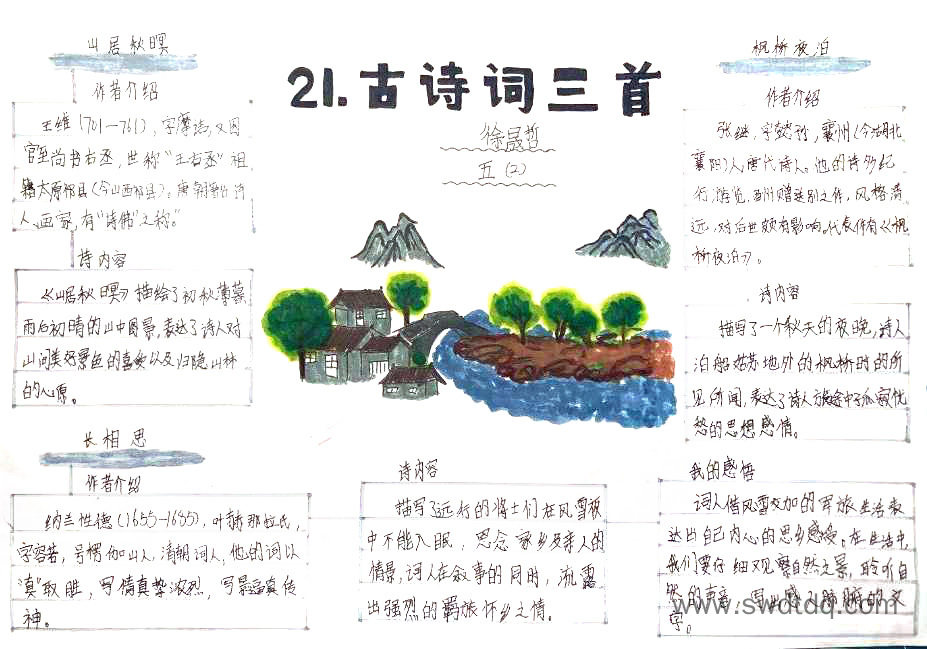 21.古诗词三首
徐晟哲
五（2）
山居秋暝
作者介绍
王维（701—761），字摩诘，又因
官至尚书右丞，世称“王右丞”祖
籍太原祁县（今山西祁县）。唐朝著名诗
人、画家，有“诗佛”之称。”
诗内容
《山居秋暝》描绘了初秋薄暮
雨后初晴的山中图景，表达了诗人对
山间美好景色的喜爱以及归隐山林
的心愿。
长相思
作者介绍
纳兰性德（1655—1685），叶赫那拉氏，
字容若，号楞伽山人，清朝词人，他的词以
“真”取胜，写情真挚浓烈，写景逼真传
神。
诗内容
描写了远行的将士们在风雪夜
中不能入眠，思念家乡及亲人的
情景，词人在叙事的同时，流露
出强烈的羁旅怀乡之情。
枫桥夜泊
作者介绍
张继，字懿孙，襄州（今湖北
襄阳）人，唐代诗人。他的诗多纪
行、游览、酬赠送别之作，风格清
远，对后世颇有影响。代表作有《枫
桥夜泊》。
诗内容
描写了一个秋天的夜晚，诗人
泊船姑苏城外的枫桥时的所
见所闻，表达了诗人旅途中孤寂忧
愁的思想感情。
我的感悟
词人借风雪交加的军旅生活表
达出自己内心的思乡感受。在生活中
我们要仔细观察自然之景，聆听自
然的声音，写出感人肺腑的文
字。
www.swdtdq.com